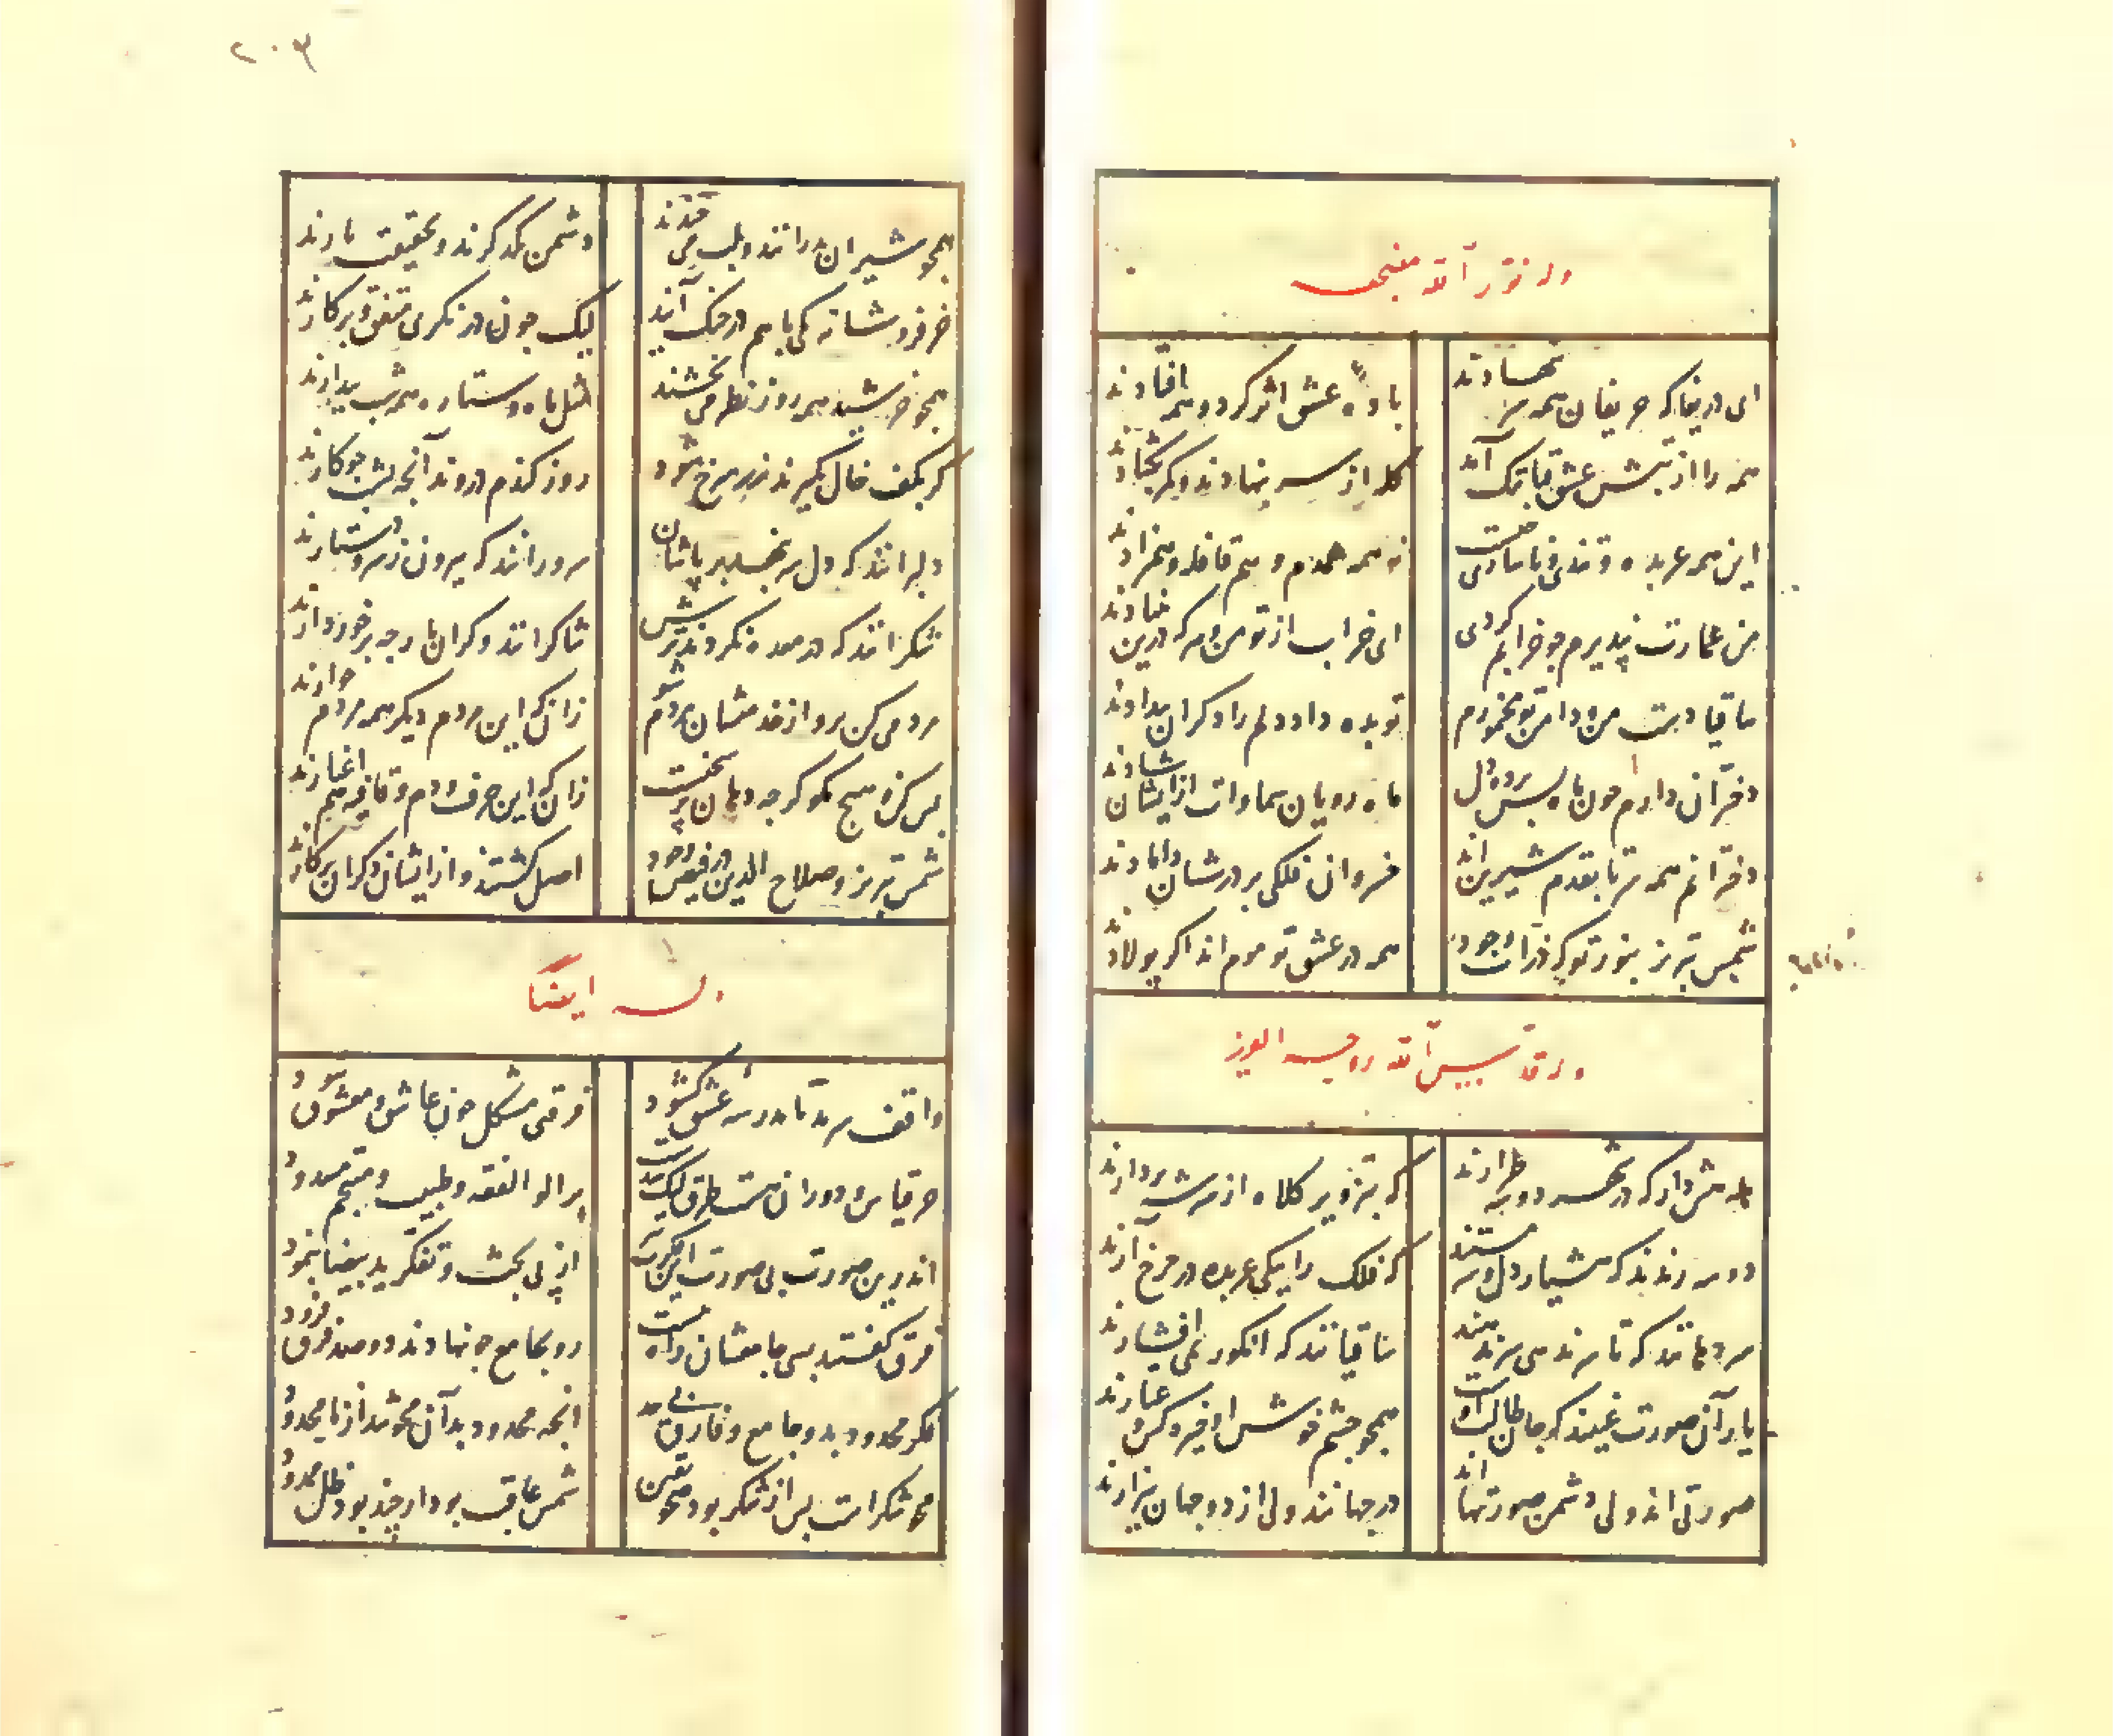 وله نور الله مضجعه
ای دریغا که حریفان همه سر بنهادند
باده عشق اثر کرد و همه افتادند
همه را از تبش عشق قبا تنک آمد
کله از سر بنهادند و کمر بکشادند
این همه عربده و تندی و ناسازی چیست
نه همه همدم و هم قافله و همزادند
من عمارت نپذیرم چو خرابم کردی
ای خراب از تو من و هر که درین بنیادند
ساقیا دست من و دامن تو مخمورم
تو بده داد دلم را دکران بیدادند
دخترانی دارم چون ماه پس پرده دل
ماه رویان سماوات از ایشان شادند
دخترانم همه سر تا بقدم شیرین‌اند
خسروان فلکی بر درشان دامادند
شمس تبریز بنور تو که ذرات وجود
همه در عشق تو موم‌اند اکر پولادند
وله قدس الله روحه العزیز
هله هش دار که در شهر دو سه طرارند
که بتزویر کلاه از سر شه بردارند
دو سه رندند که هشیار دل و سر مستند
که فلک را بیکی عربده در چرخ آرند
سردهانند که تا سر ندهی سر ندهند
ساقیانند که انکور نمی‌افشارند
یار آن صورت غیبند که جان طالب اوست
همچو چشم خوش او خیره‌کش و عیارند
صورتی‌اند ولی دشمن صورتهااند
در جهانند ولی از دو جهان بیزارند
۲۰۳
همچو شیران بدرانند و بلب می‌خندند
دشمن همدکرند و بحقیقت یارند
خرفروشانه یکی با هم در جنک آیند
لیک چون درنکری متفق یک کارند
همچو خرشید همه روز نظر می‌بخشند
مثل ماه و ستاره همه شب بیدارند
کر بکف خاک بکیرند زر سرخ شود
روز کندم دروند آنچه بشب جو کارند
دلبرانند که دل بر نجهد بی‌برشان
سرورانند که بیرون ز سر و دستارند
شکرانند که در معده نکردند ترش
شاکرانند و کران یار چه برخوردارند
مردمی کن برو از خدمتشان مردم شو
زانکه این مردم دیکر همه مردم‌خوارند
بس کن و هیچ مکو کرچه دهان پر سخنست
زانکه این حرف و دم و قافیه هم اغیارند
شمس تبریز و صلاح الدین در فیض وجود
اصل کشتند و از ایشان دکران پرکارند
وله ایضا
واقف سرمد تا مدرسه عشق کشود
فرقی مشکل چون عاشق و معشوق نبود
جز قیاس و دوران هست طرق لیک شدست
بر اولو الفقه و طبیب و منجم مسدود
اندرین صورت بی صورت آن
از پی بحث و تفکر ید بیضا بنمود
فرق کفتند بسی جامعشان راه ببست
رو بجامع چو نهادند دو صد فرق فزود
فکر محدود بد و جامع و فارق بی‌حد
آنچه محدود بد آن محو شد از نامحدود
محو شکر است پس از شکر بود محو یقین
شمس عاقب بود ار چند بود ظل ممدود